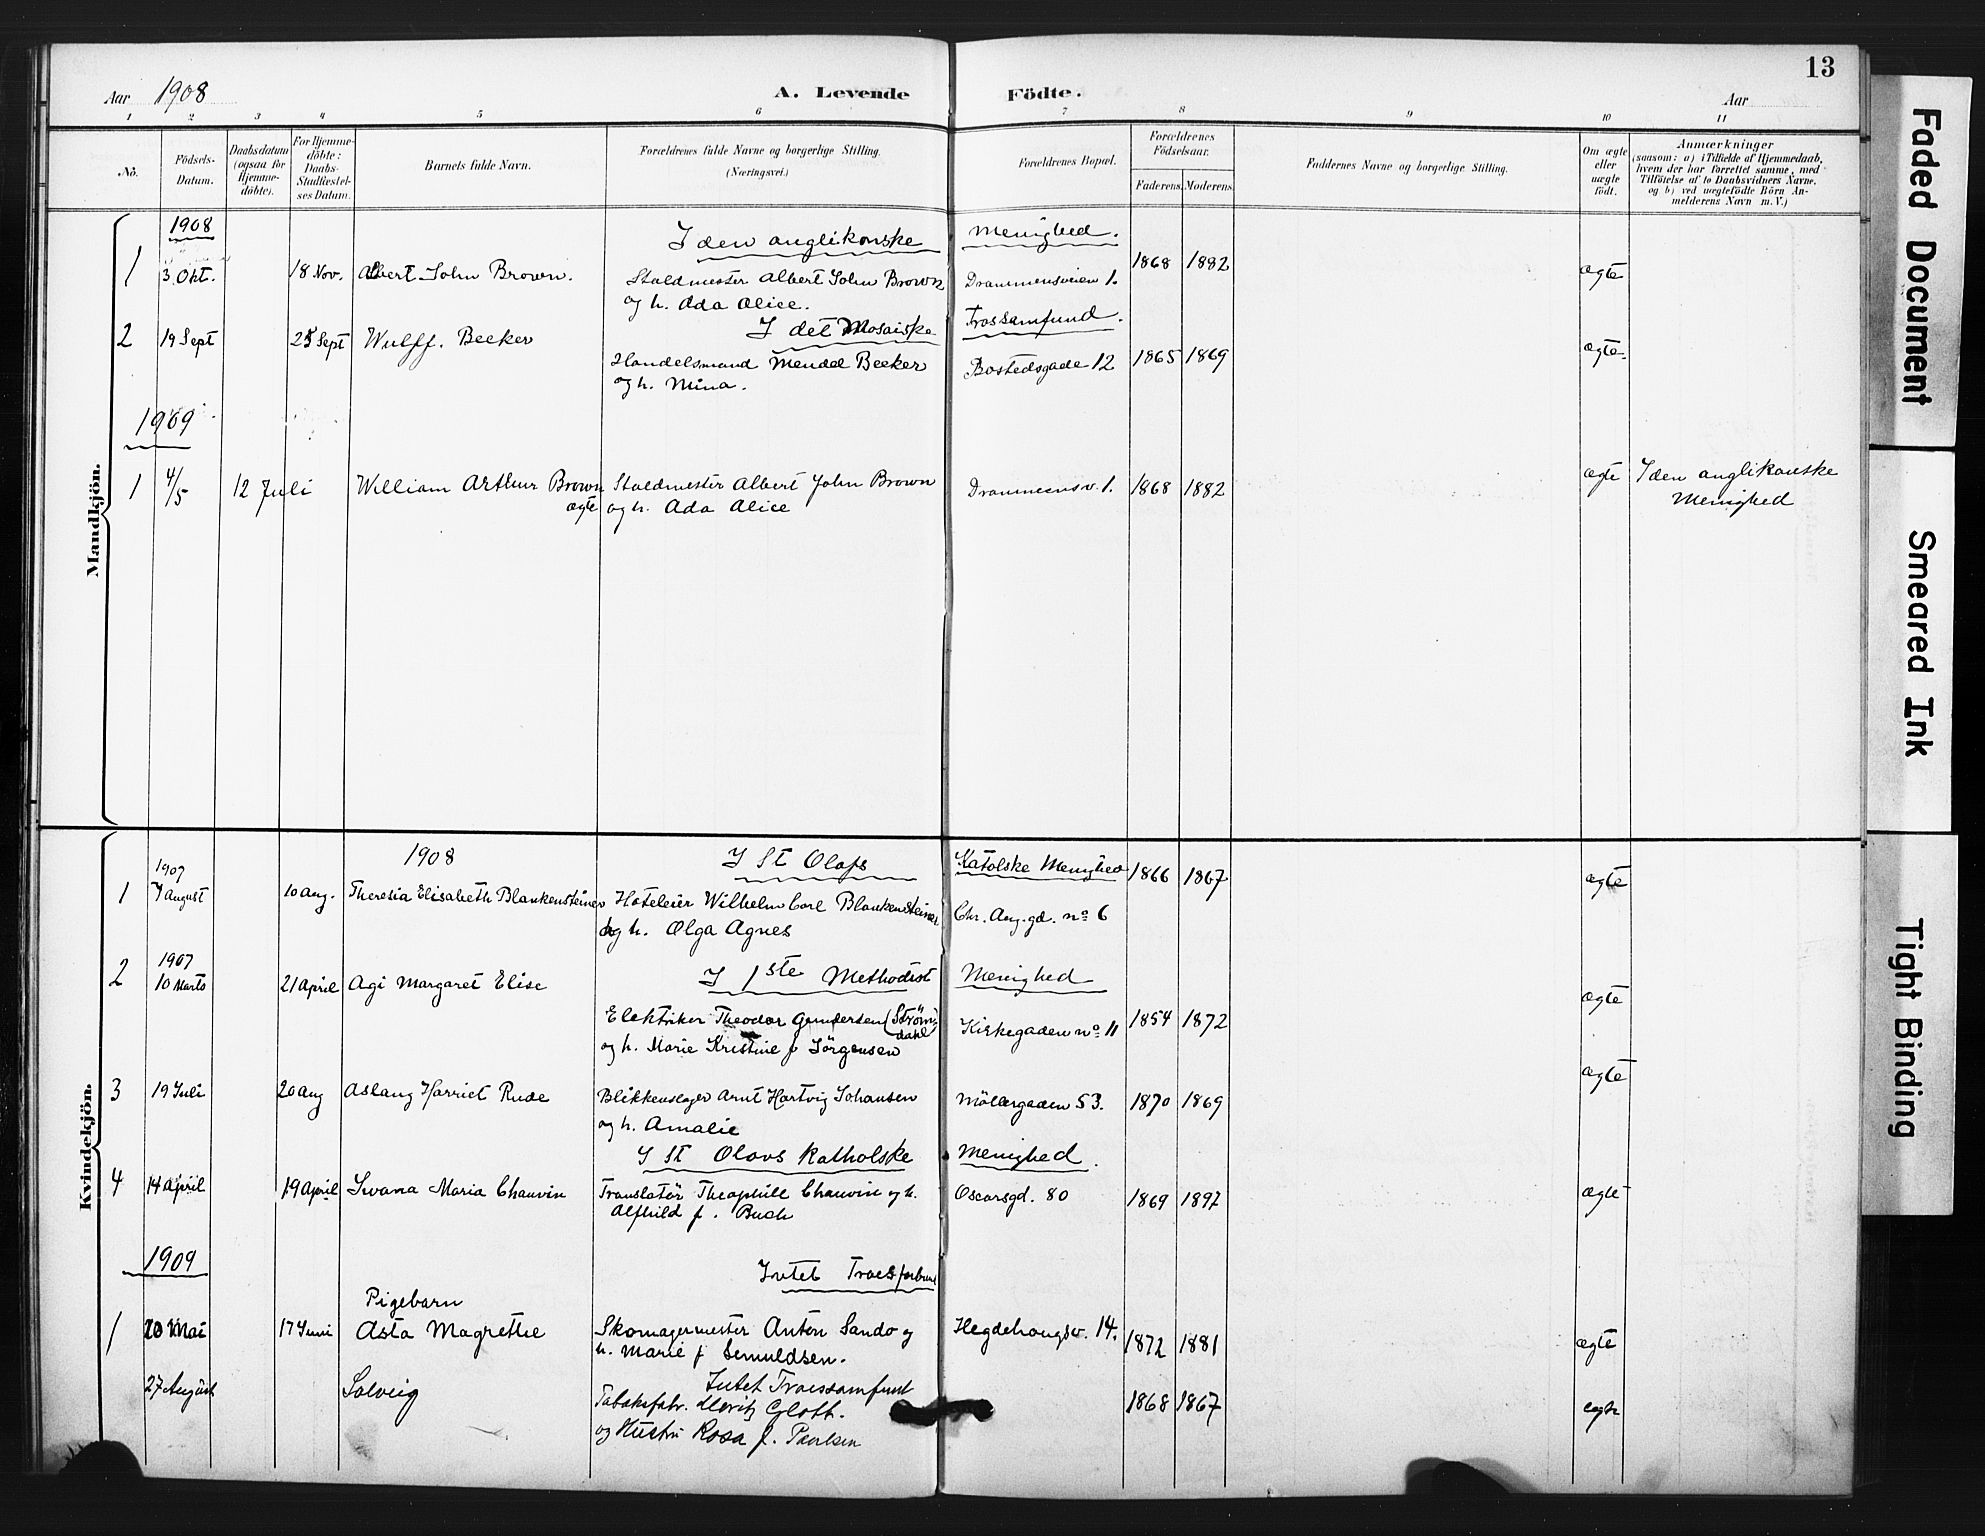 13
Aar 1908 A. Levende Födte. Aar
1 2 3 4 5 6 7 8 9 10 11
No.
Födsels-Datum.
Daabsdatum (ogsaa for Hjemme-döbte).
For Hjemme-döbte: Daabs-Stadfæstel-ses Datum.
Barnets fulde Navn.
Forældrenes fulde Navne og borgerlige Stilling.
(Næringsvei.)
Forældrenes Bopæl.
Forældrenes Födselsaar.
Faderens. Moderens.
Faddernes Navne og borgerlige Stilling.
Om ægte eller uægte födt.
Anmærkninger
(saasom: a) i Tilfælde af Hjemmedaab,
hvem der har forrettet samme, med
Tilföielse af to Daabsvidners Navne,
og b) ved uægtefödte Börn An-
melderens Navn m. V.)
Mandkjön.
1908
I den anglikanske Menighed.
1 3 Okt. 18 Nov. Albert John Brown. Staldmester Albert John Brown Drammensveien 1. 1868 1882 ægte
og h. Ada Alice.
I det Mosaiske Trossamfund.
2 19 Sept 25 Sept Wulff. Beeker
Handelsmand Mendel Beeker Bostedsgade 12 1865 1869 ægte
og h. Mina.
1909
1 4/5 12 Juli William Arthur Brown Staldmester Albert John Brown Drammensv. 1. 1868 1882 ægte I den anglikanske
ægte og h. Ada Alice Menighed
Kvindekjön.
1908 I St Olafs Katolske Menighed
1907
1 7 August 10 Aug. Theresia Elisabeth Blankensteiner Hoteleier Wilhelm Carl Blankensteiner Chr. Aug. gd. no 6 1866 1867 ægte
og h. Olga Agnes
1907
2 10 Marts 21 April Agi Margaret Elise I 1ste Methodist Menighed
Elektriker Theodor Gundersen (Ström-
dahl Kirkegaden no 11 1854 1872 ægte
og h. Marie Kristine f Jörgensen
3 19 Juli 20 Aug Aslaug Harriet Rude Blikkenslager Arnt Hartvig Johansen Möllergaden 53. 1870 1869 ægte
og h. Amalie
I St Olavs Katholske Menighed.
4 14 April 19 April Ivana Maria Chauvin Translatör Theophile Chauvin og h. Oscarsgd. 80 1869 1897 ægte
Alfhild f. Buch
1909
Intet Troesforbund
Pigebarn
1 20 Mai 17 Juni Asta Magrethe Skomagermester Anton Sando og Hegdehaugsv. 14. 1872 1881 ægte
h. Marie f Semuldsen.
Intet Troessamfund
27 August Solveig Tobaksfabr. Moritz Glott. 1868 1867 ægte
og Hustru Rosa f. Paulsen
Faded Document
Smeared Ink
Tight Binding